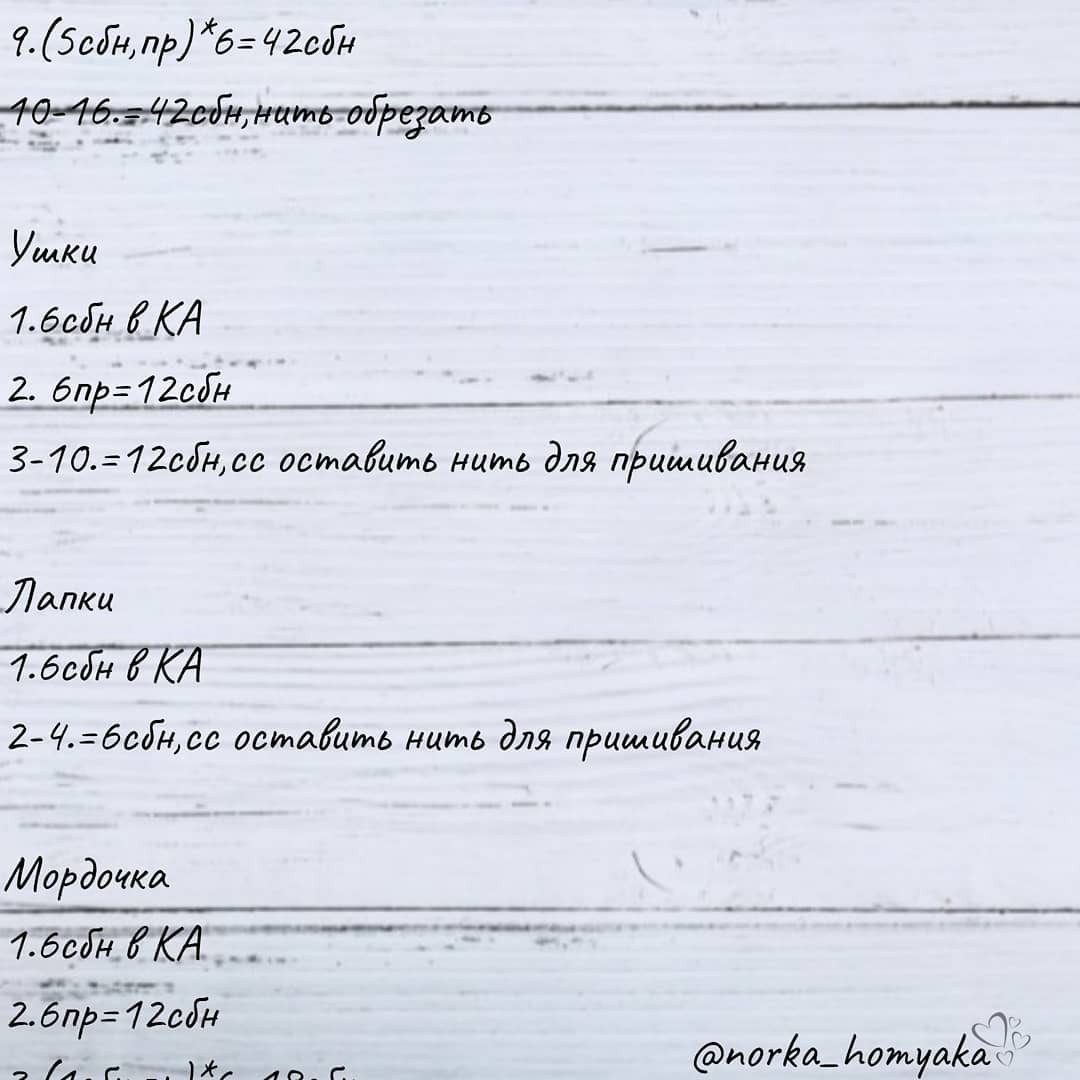 9.(5сбн,пр)*6=42сбн
10-16.=42сбн,нить обрезать
Ушки
1.6сбн в КА
2. 6пр=12сбн
3-10.=12сбн,сс оставить нить для пришивания
Лапки
1.6сбн в КА
2-4.=6сбн,сс оставить нить для пришивания
Мордочка
1.6сбн в КА
2.6пр=12сбн
@norka_homyaka